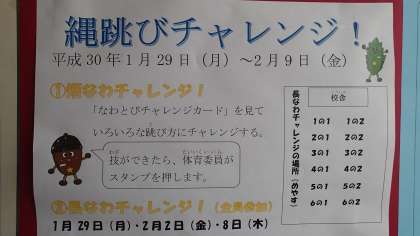 縄跳びチャレンジ！
平成30年1月29日（月）～2月9日（金）
①短なわチャレンジ！
「なわとびチャレンジカード」を見て
いろいろな跳び方にチャレンジする。
技ができたら、体育委員が
スタンプを押します。
②長なわチャレンジ！（全員参加）
1月29日（月）・2月2日（金）・8日（木）
長なわチャレンジの場所（めやす）
校舎
1の1 1の2
2の1 2の2
3の1 3の2
4の1 4の2
5の1 5の2
6の1 6の2